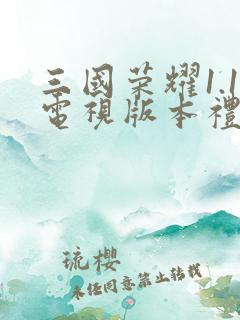 三國荣耀1.1
電視版本禮
琉櫻
未经同意禁止转载